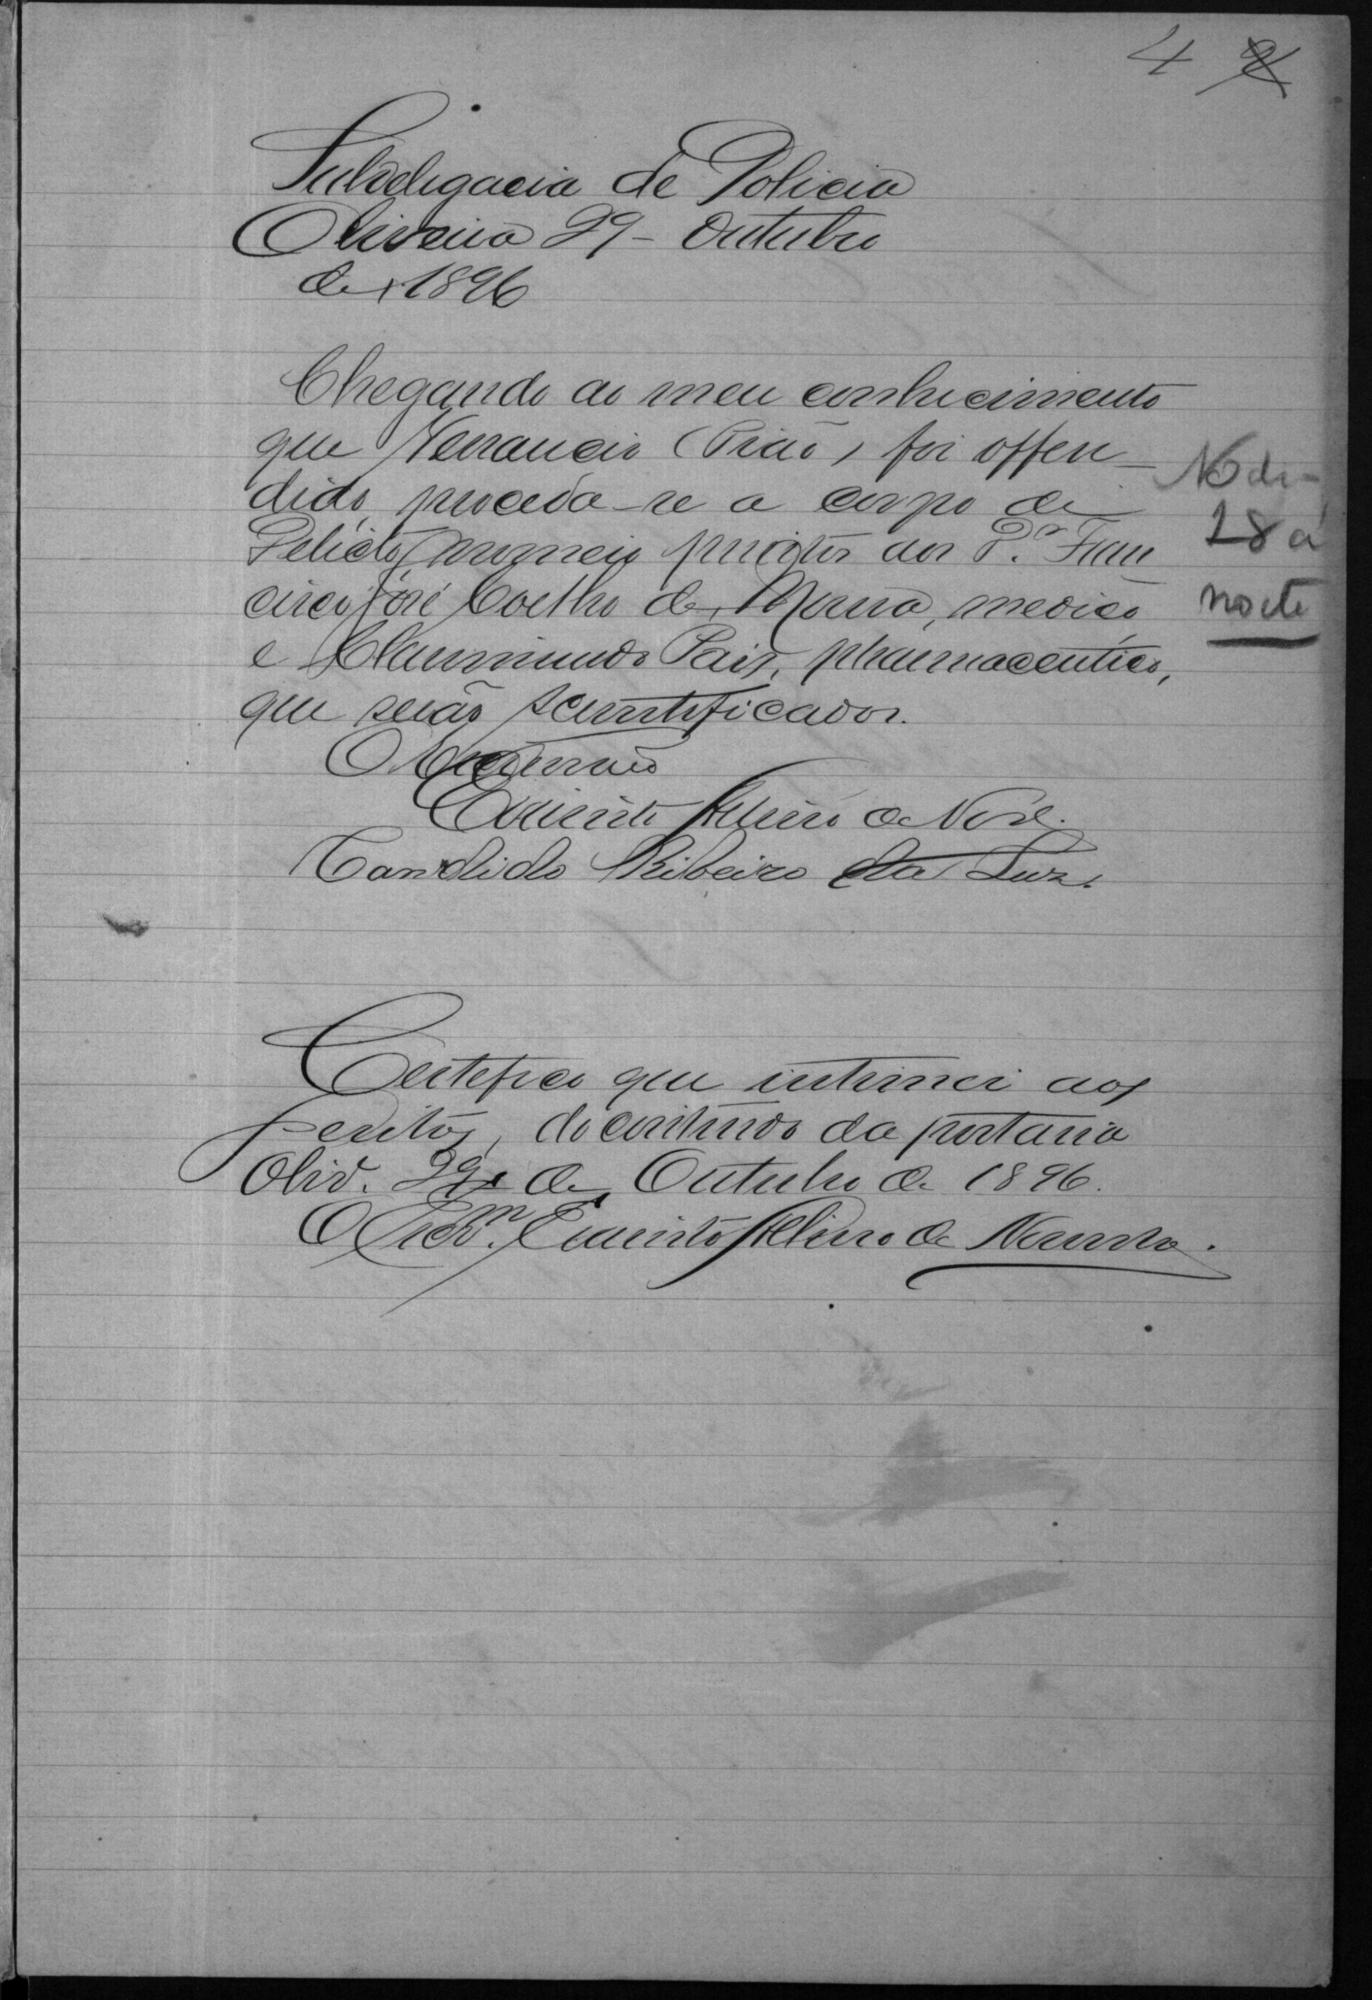 4 2
Subdelegacia de Policia
Oliveira 29 - Outubro
de 1896
Chegando ao meu conhecimento
que Venancio (Pião) foi offen-
dido, proceda-se a corpo de
Delicto, nomeio peritos aos Dr. Fran
cisco José Coelho de Moura, medico
e Clarimundo Pais, pharmaceutico,
que serão scientificados.
No dia
28 á
noite
O Escrivão
Candido Ribeiro da Luz.
Certefico que intimei aos
peritos, do contendo da portaria
Oliv. 29 de Outubro de 1896.
O Escrm.